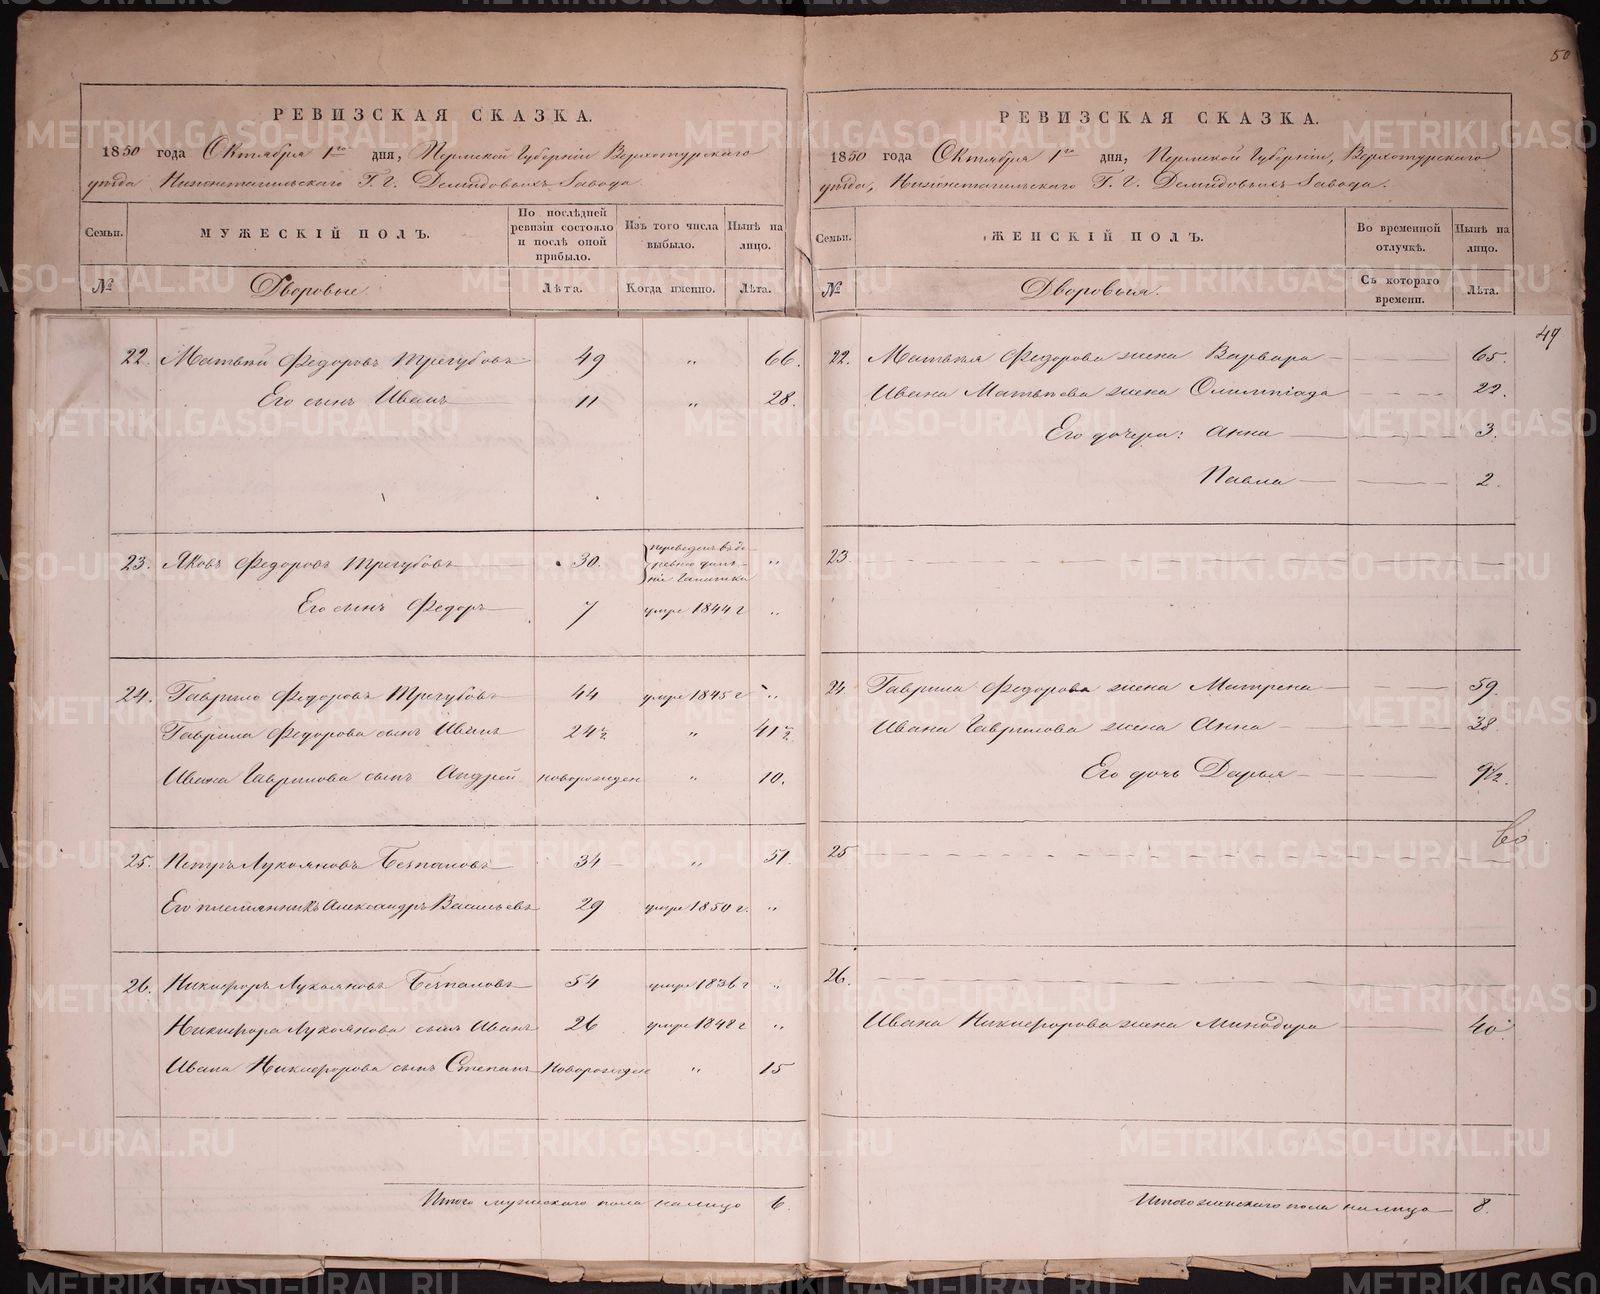 50
РЕВИЗСКАЯ СКАЗКА.
1850 года Октября 1го дня, Пермской Губерніи Верхотурскаго
уѣзда Нижнетагильскаго Г. г. Демидовыхъ Завода.
Семьи. МУЖЕСКІЙ ПОЛЪ. По послѣдней ревизіи состояло и послѣ оной прибыло. Изъ того числа выбыло. Нынѣ на лицо.
№ Дворовые Лѣта. Когда именно. Лѣта.
22. Матвѣй Федоровъ Трегубовъ 49 „ 66.
Его сынъ Иванъ 11 „ 28.
23. Яковъ Федоровъ Трегубовъ 30. переведенъ въ де- „
Его сынъ Федоръ 7 умре 1844 г „
24. Гаврило Федоровъ Трегубовъ 44 умре 1845 г „
Гаврила Федорова сынъ Иванъ 24½ „ 41½
Ивана Гаврилова сынъ Андрей новорожден „ 10.
25. Петръ Лукояновъ Безпаловъ 34 „ 51.
Его племянникъ Александръ Васильевъ 29 умре 1850 г. „
26. Никифоръ Лукояновъ Безпаловъ 54 умре 1836 г „
Никифора Лукоянова сынъ Иванъ 26 умре 1848 г „
Ивана Никифорова сынъ Степанъ Новорожден „ 15
Итого мужескаго пола налицо 6.
РЕВИЗСКАЯ СКАЗКА.
1850 года Октября 1го дня, Пермской Губерніи, Верхотурскаго
уѣзда, Нижнетагильскаго Г. г. Демидовыхъ Завода.
Семьи. ЖЕНСКІЙ ПОЛЪ. Во временной отлучкѣ. Нынѣ на лицо.
№ Дворовыя. Съ котораго времени. Лѣта.
49
22. Матвѣя Федорова жена Варвара 65.
Ивана Матвѣева жена Олимпіада 22.
Его дочери: Анна 3.
Павла 2.
23.
24. Гаврила Федорова жена Матрена 59.
Ивана Гаврилова жена Анна 38.
Его дочь Дарья 9½.
25
26.
Ивана Никифорова жена Минодора 40
Итого женскаго пола налицо 8.
METRIKI.GASO-URAL.RU